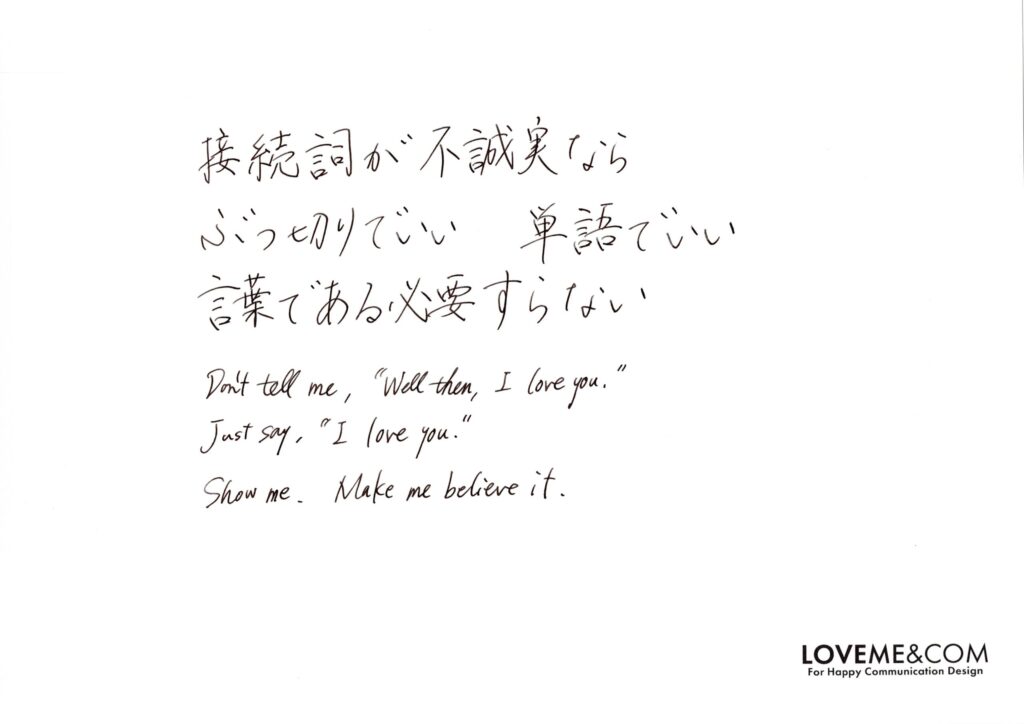 接続詞が不誠実なら
ぶつ切りでいい　単語でいい
言葉である必要すらない
Don't tell me, "Well then, I love you."
Just say, "I love you."
Show me. Make me believe it.
LOVEME&COM
For Happy Communication Design